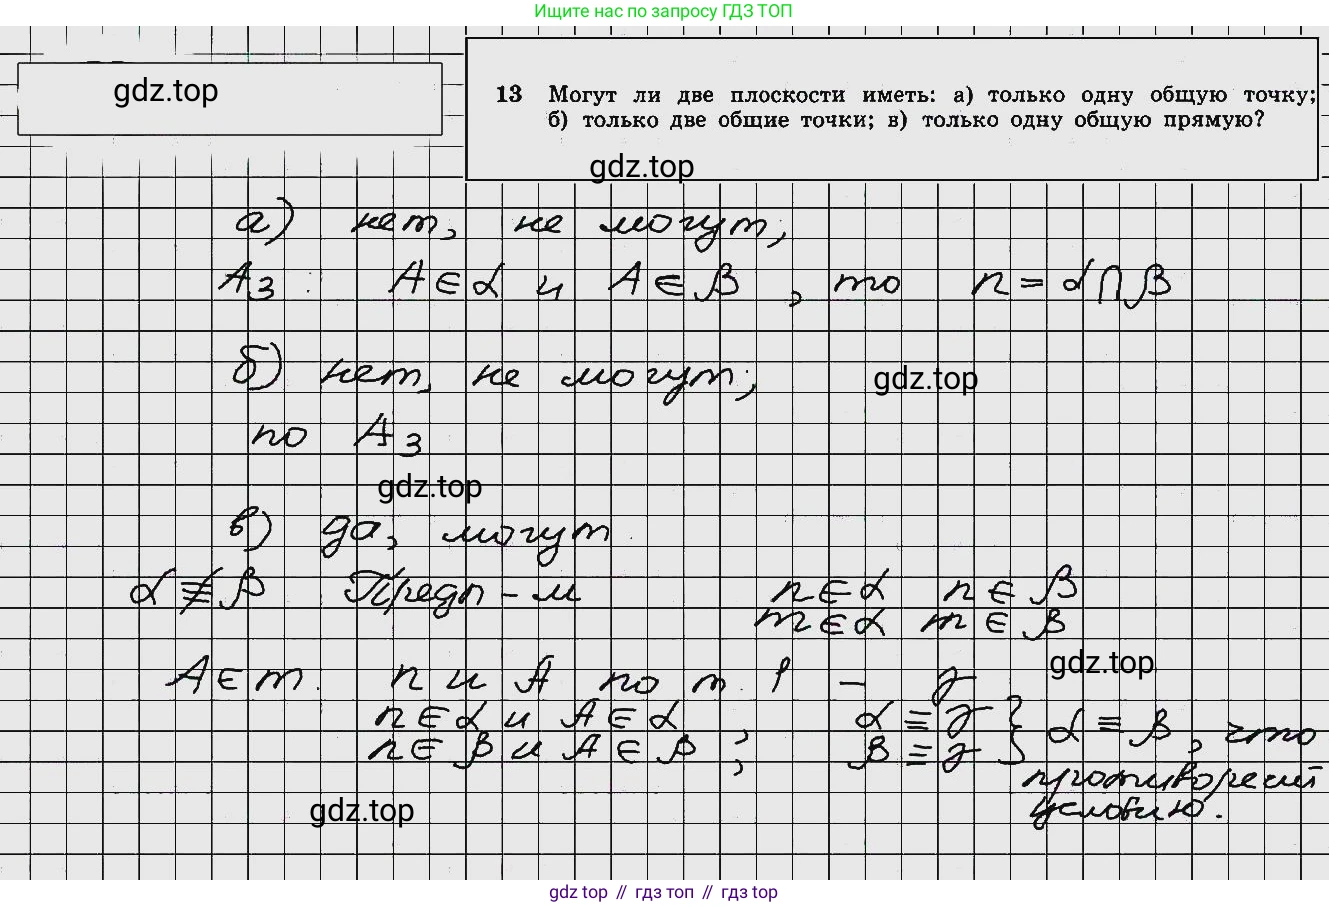 Ищите нас по запросу ГДЗ ТОП
gdz.top
13 Могут ли две плоскости иметь: а) только одну общую точку;
б) только две общие точки; в) только одну общую прямую?
gdz.top
а) нет, не могут;
А3: A ∈ α и A ∈ β, то n = α ∩ β
б) нет, не могут;
gdz.top
по А3
gdz.top
в) да, могут
α ≢ β Предп-м n ∈ α n ∈ β
m ∈ α m ∈ β
gdz.top
A ∈ m. n и A по т. 1 – γ
n ∈ α и A ∈ α ; α ≡ γ } α ≡ β, что
n ∈ β и A ∈ β ; β ≡ γ
противоречит
условию.
gdz.top
gdz top // гдз топ // гдз top